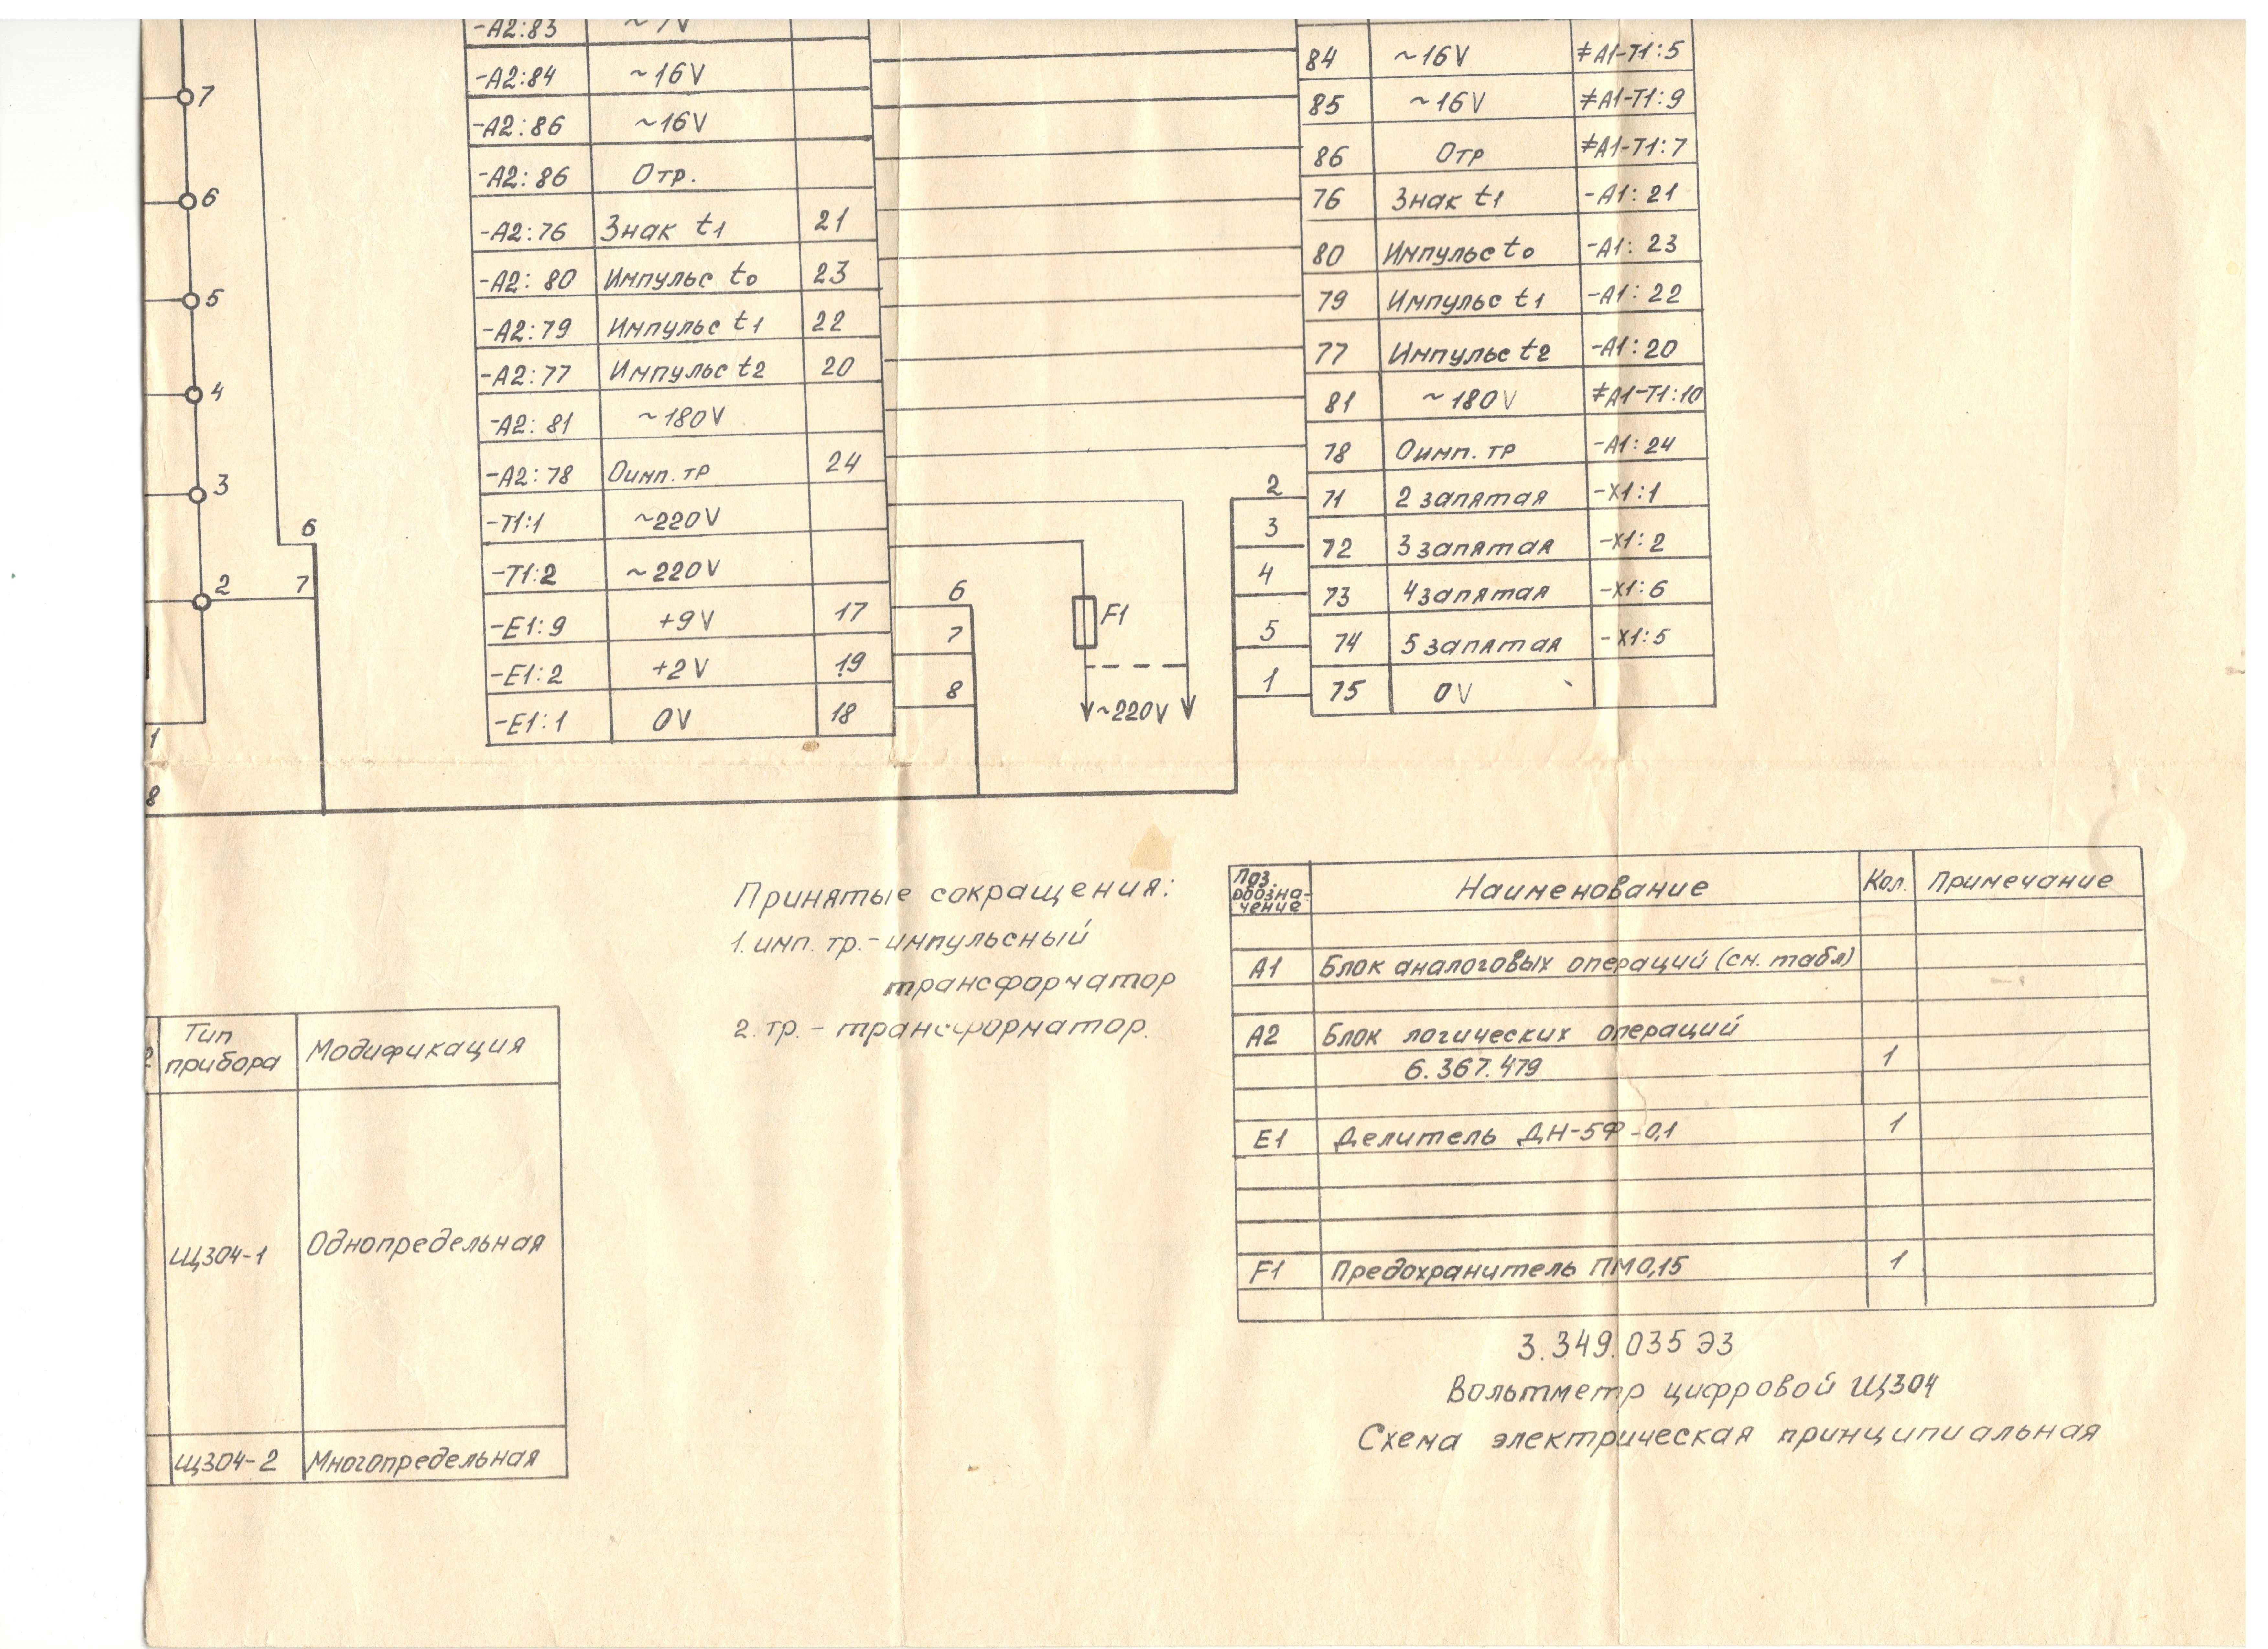 7
6
5
4
3
2
1
8
6
7
-A2:83
-A2:84 ~16V
-A2:86 ~16V
-A2:86 Отр.
-A2:76 Знак t1 21
-A2:80 Импульс t0 23
-A2:79 Импульс t1 22
-A2:77 Импульс t2 20
-A2:81 ~180V
-A2:78 Оимп.тр 24
-T1:1 ~220V
-T1:2 ~220V
-E1:9 +9V 17
-E1:2 +2V 19
-E1:1 0V 18
6
7
8
F1
~220V
2
3
4
5
1
84 ~16V ≠A1-T1:5
85 ~16V ≠A1-T1:9
86 Отр ≠A1-T1:7
76 Знак t1 -A1:21
80 Импульс t0 -A1:23
79 Импульс t1 -A1:22
77 Импульс t2 -A1:20
81 ~180V ≠A1-T1:10
78 Оимп.тр -A1:24
71 2 запятая -X1:1
72 3 запятая -X1:2
73 4 запятая -X1:6
74 5 запятая -X1:5
75 0V
Принятые сокращения:
1. имп. тр.- импульсный
трансформатор
2. тр. - трансформатор.
Тип Модификация
прибора
Щ304-1 Однопредельная
Щ304-2 Многопредельная
Поз. обозна-чение Наименование Кол. Примечание
A1 Блок аналоговых операций (см. табл)
A2 Блок логических операций
6.367.479 1
E1 Делитель ДН-5Ф-0,1 1
F1 Предохранитель ПМ0,15 1
3.349.035 Э3
Вольтметр цифровой Щ304
Схема электрическая принципиальная